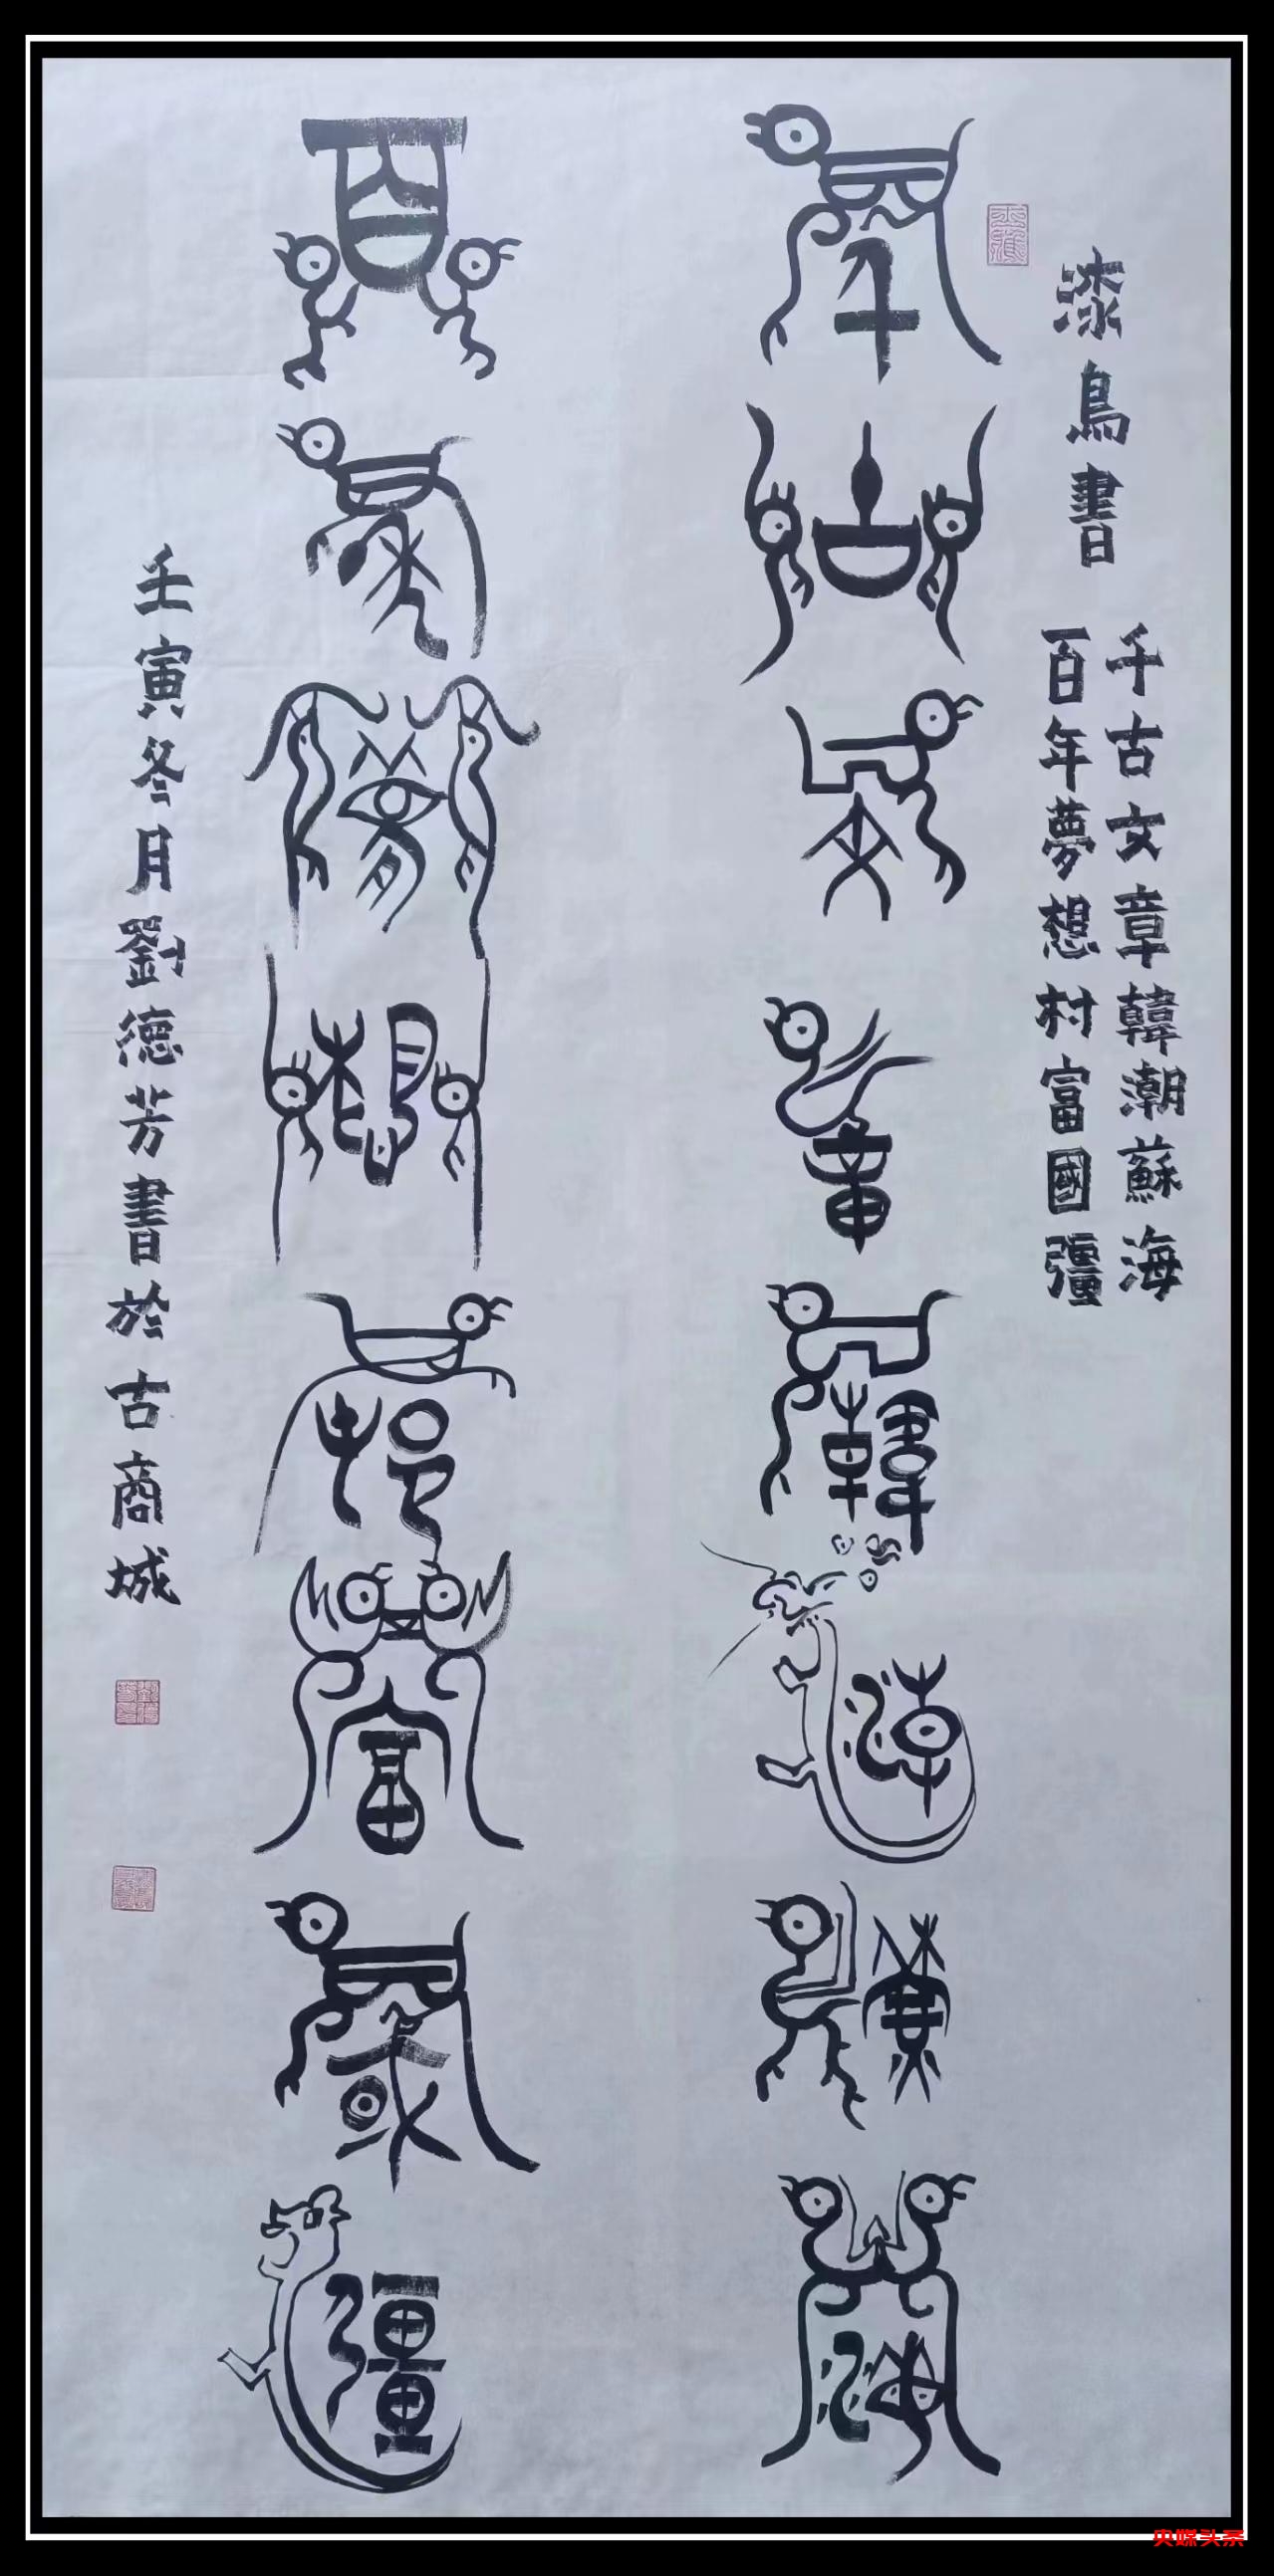 漆鳥書
千古文章韓潮蘇海
百年夢想村富國彊
千古文章韓潮蘇海
百年夢想邨富國彊
壬寅冬月劉德芳書於古商城
央媒头条